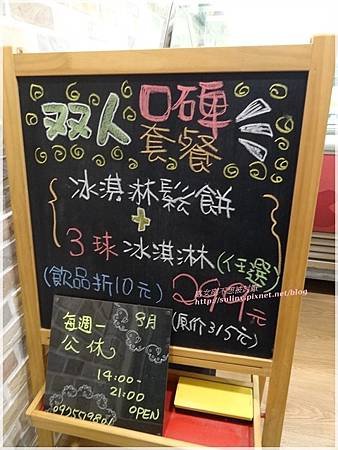 双人口碑套餐
冰淇淋鬆餅
+
3球冰淇淋(任選)
(飲品折10元)
元
(原价315元)
每週一
8月
公休
14:00-
21:00
OPEN